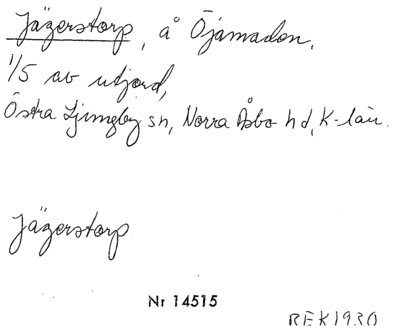 Jägerstorp, å Öjamaden,
1/5 av utjord,
Östra Ljungby sn, Norra Åsbo hd, K-län.
Jägerstorp
Nr 14515
REK1930